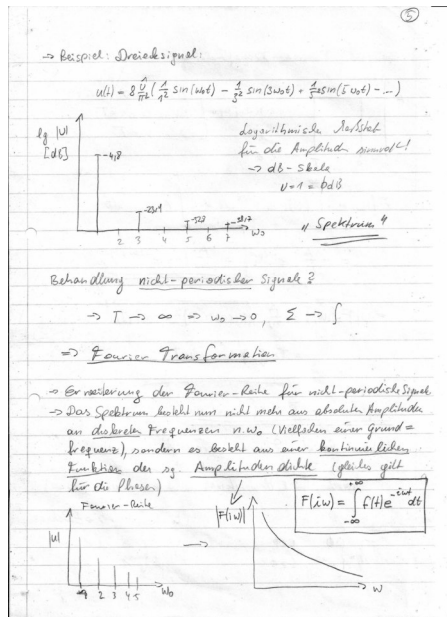 5
→ Beispiel: Dreiecksignal:
u(t) = 8 û/π² ( 1/1² sin(ω₀t) - 1/3² sin(3ω₀t) + 1/5² sin(5ω₀t) - ... )
lg |U|
[dB]
Logarithmischer Maßstab
für die Amplituden sinnvoll!
→ dB-Skala
"Spektrum"
2 3 4 5 6 7 ω₀
Behandlung nicht-periodischer Signale?
→ T → ∞ ⇒ ω₀ → 0, Σ → ∫
⇒ Fourier Transformation
→ Erweiterung der Fourier-Reihe für nicht-periodische Signale
→ Das Spektrum besteht nun nicht mehr aus absoluten Amplituden
an diskreten Frequenzen n·ω₀ (Vielfachen einer Grund=
frequenz), sondern es besteht aus einer kontinuierlichen
Funktion der sg. Amplitudendichte (gleiches gilt
für die Phasen)
Fourier-Reihe
|U|
2 3 4 5 ω₀
|F(iω)|
ω
F(iω) = ∫_{-∞}^{+∞} f(t) e^{-iωt} dt